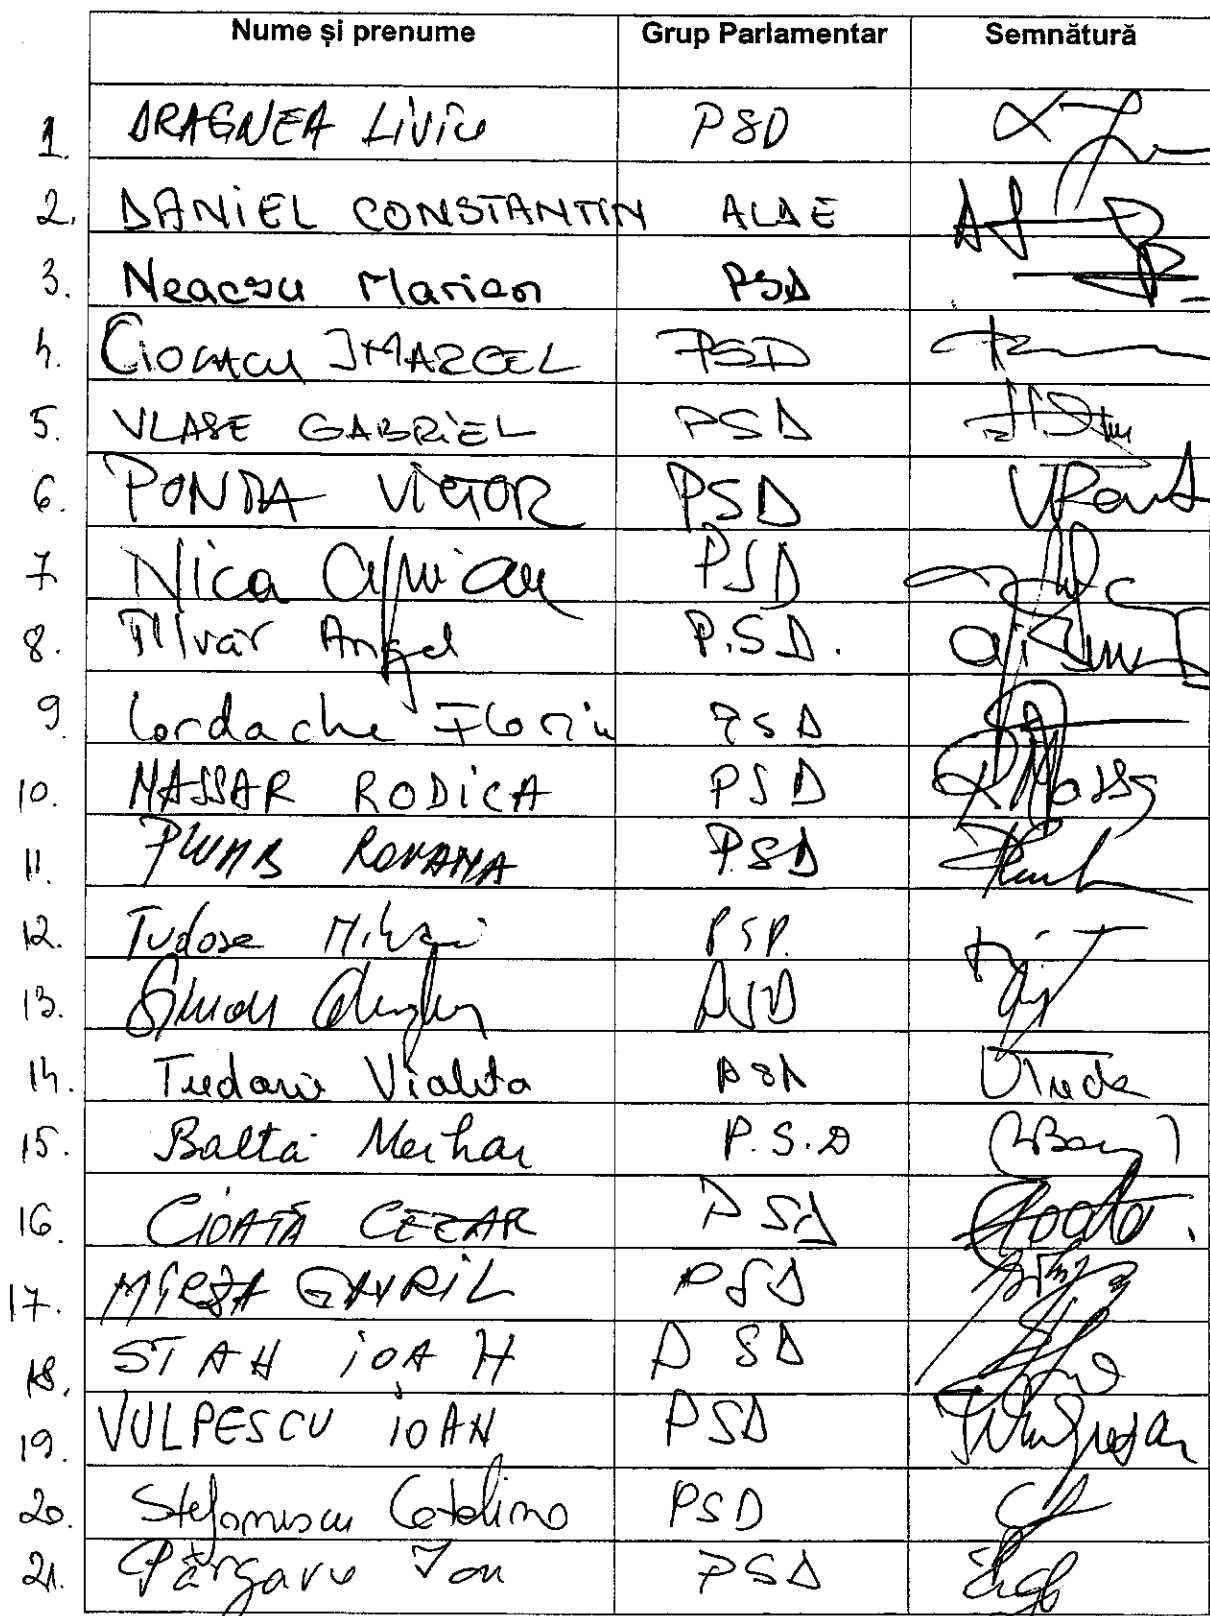 Nume și prenume Grup Parlamentar Semnătură
1. DRAGNEA LIVIU PSD
2. DANIEL CONSTANTIN ALDE
3. Neacsu Marian PSD
4. Ciolacu I MARCEL PSD
5. VLASE GABRIEL PSD
6. PONTA VICTOR PSD VPonta
7 Nica PSD
8. Tîlvăr Angel P.S.D.
9 Iordache Florin PSD
10. NASSAR RODICA PSD
11. PLUMB ROVANA PSD
12. Tudose Mihai PSD
13. Simon Gheorghe PSD
14. Tudorie Violeta PSD
15. Balta Mihai P.S.D
16. CIOATĂ CEZAR PSD
17. MÎRȘA GAVRIL PSD
18. STAN IOAN PSD
19. VULPESCU IOAN PSD
20. Stefanescu Catalina PSD
21. Pârgaru Ion PSD